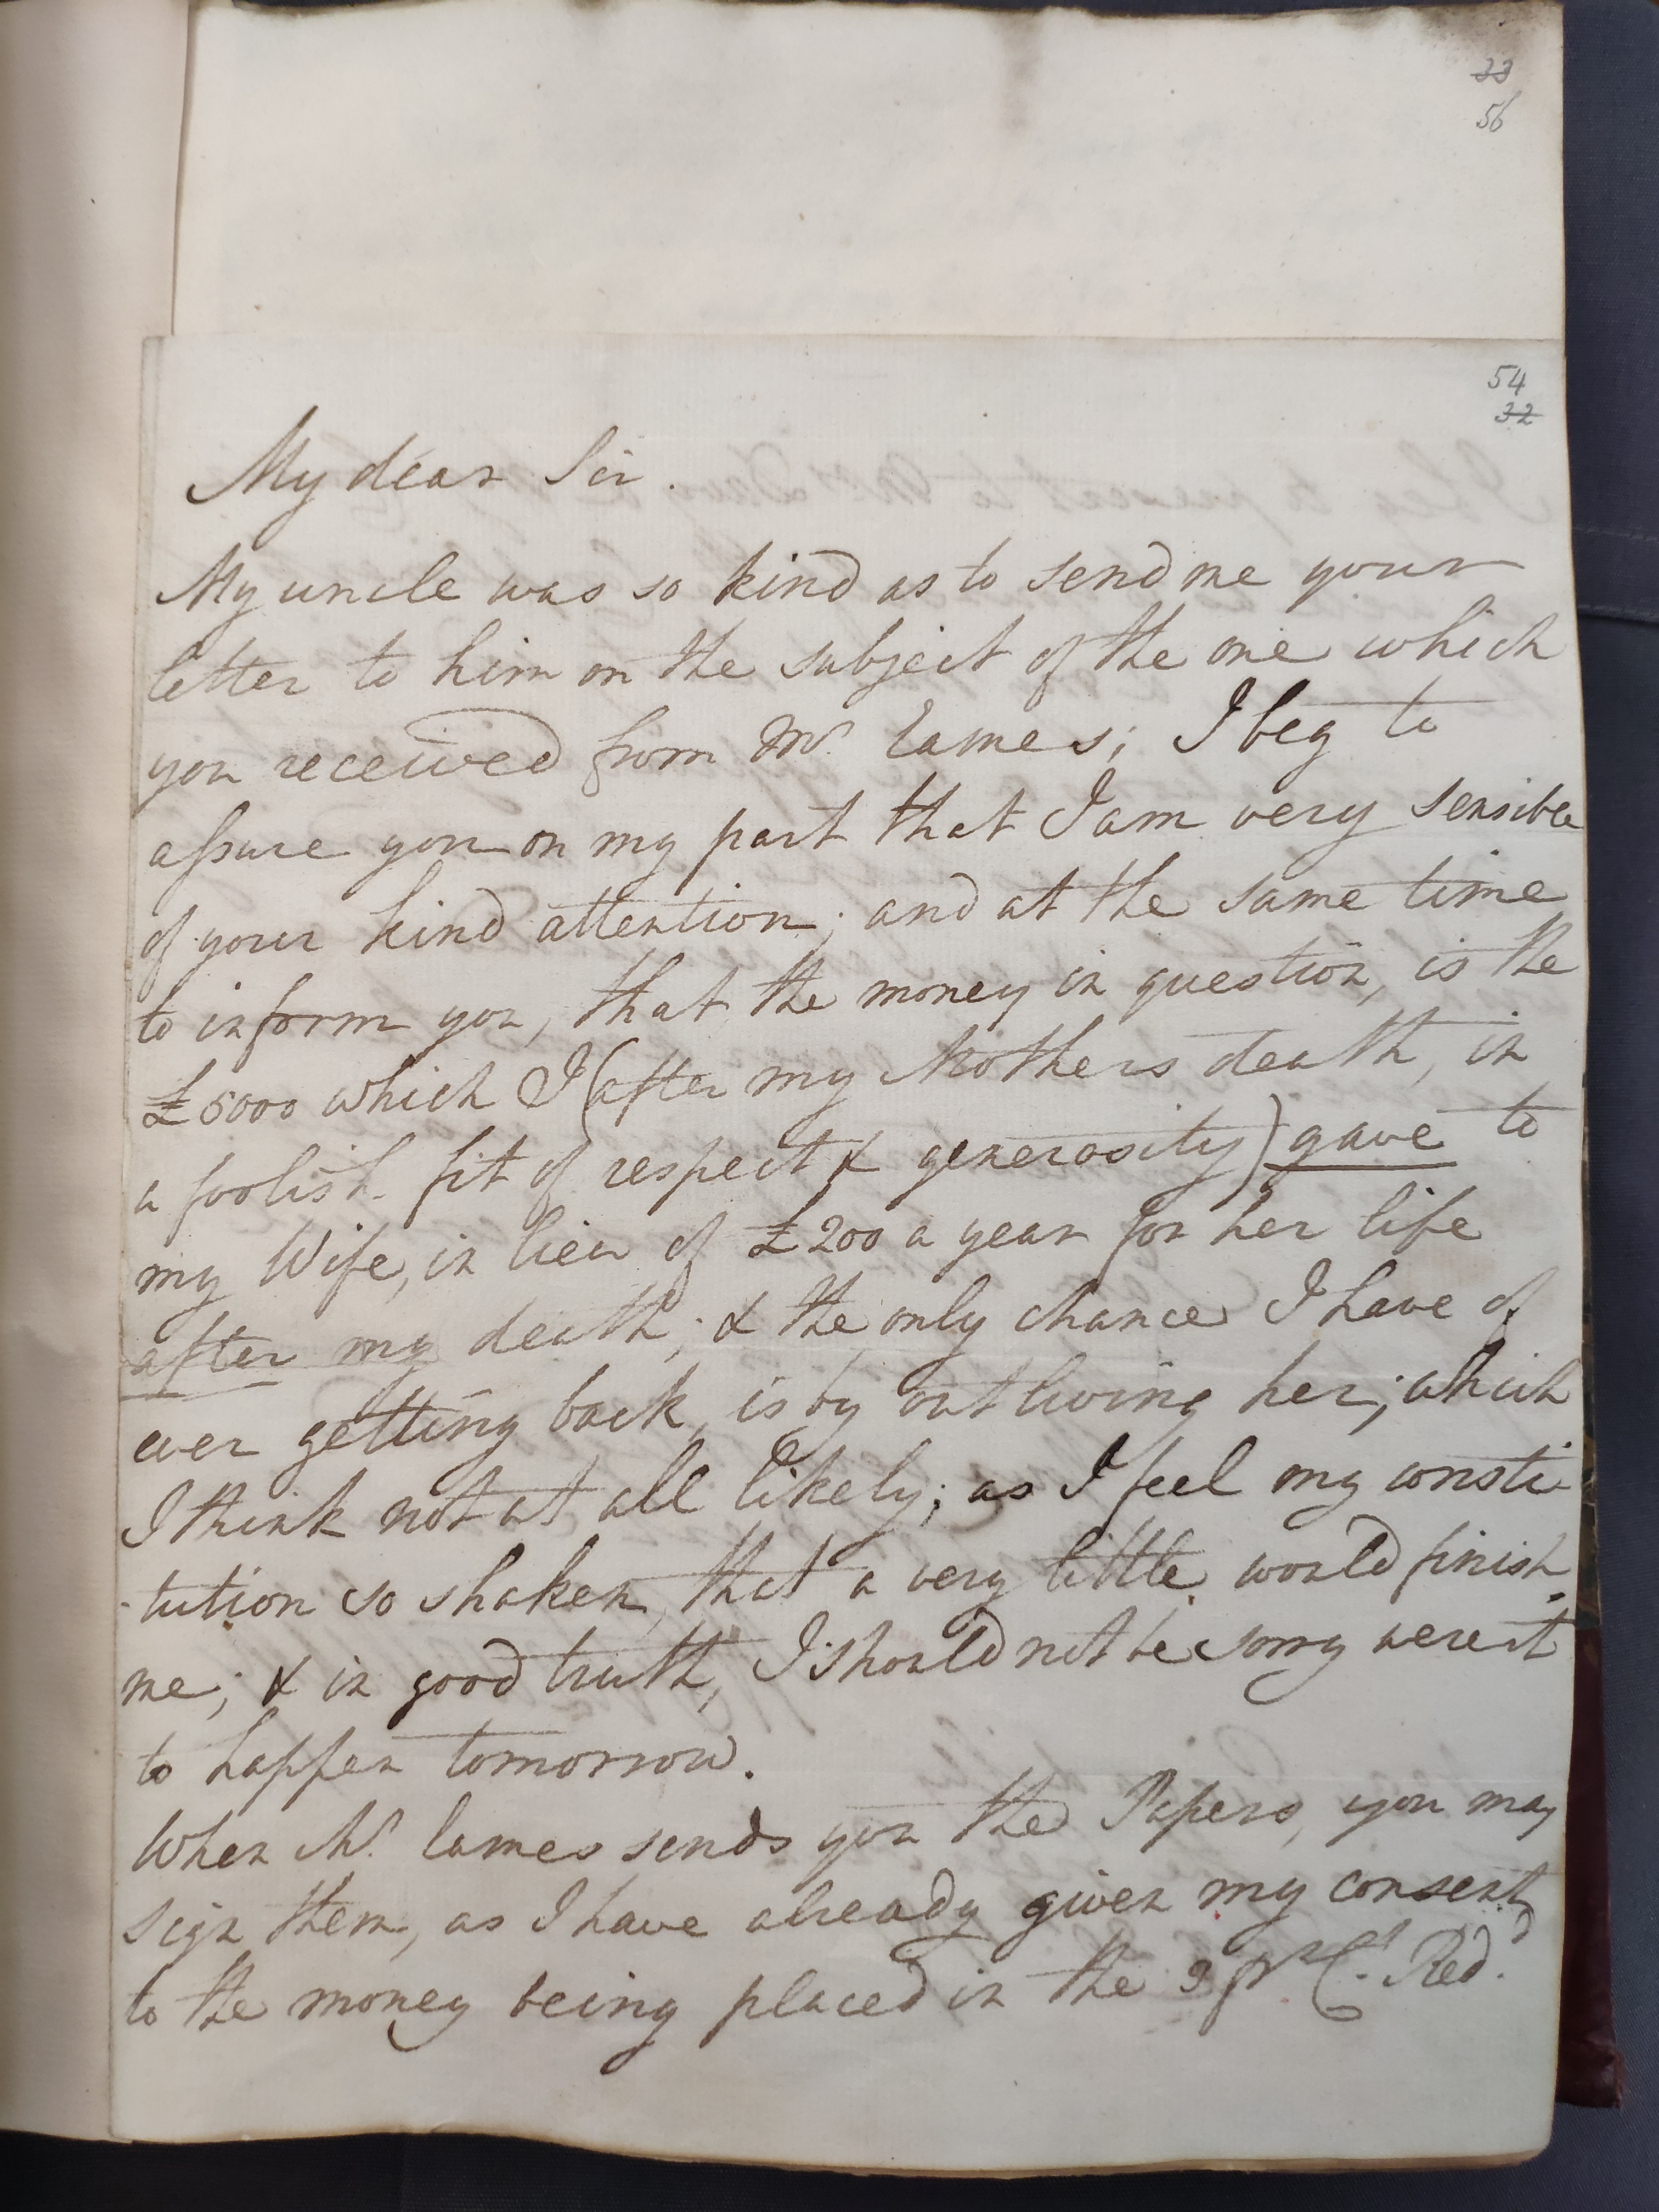 33
56
54
32
My dear Sir.
My uncle was so kind as to send me your
letter to him on the subject of the one which
you received from Mr. Eames; I beg to
assure you on my part that I am very sensible
of your kind attention; and at the same time
to inform you, that the money in question, is the
£5000 which I (after my Mothers death, in
a foolish fit of respect & generosity) gave to
my Wife, in lieu of £200 a year for her life
after my death; & the only chance I have of
ever getting back, is by outliving her; which
I think not at all likely; as I feel my consti-
-tution so shaken, that a very little would finish
me; & in good truth, I should not be sorry were it
to happen tomorrow.
When Mr. Eames sends you the Papers, you may
sign them, as I have already given my consent
to the money being placed in the 3 pr. Ct. Red.d